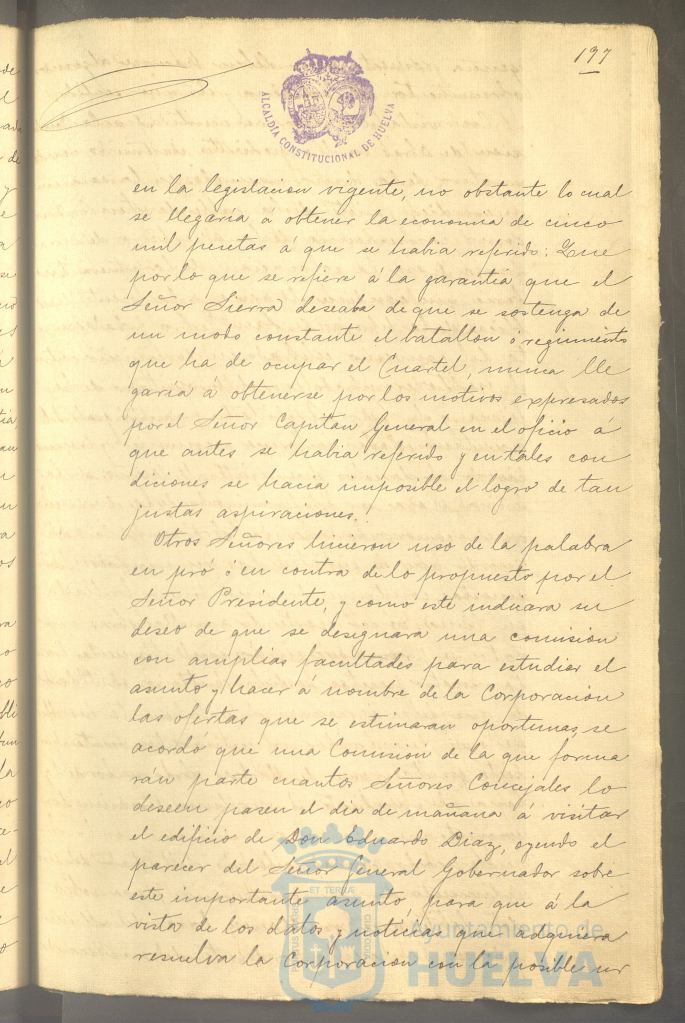 197
ALCALDÍA CONSTITUCIONAL DE HUELVA
en la legislacion vigente, no obstante lo cual
se llegaría a obtener la economia de cinco
mil pesetas á que se habia referido: Que
por lo que se refiere á la garantía que el
Señor Sierra deseaba de que se sostenga de
un modo constante el batallon ó regimiento
que ha de ocupar el Cuartel, nunca lle
garía á obtenerse por los motivos expresados
por el Señor Capitan General en el oficio á
que antes se habia referido y en tales con
diciones se hacia imposible el logro de tan
justas aspiraciones.
Otros Señores hicieron uso de la palabra
en pró ó en contra de lo propuesto por el
Señor Presidente, y como este indicara su
deseo de que se designara una comision
con amplias facultades para estudiar el
asunto y hacer á nombre de la Corporacion
las ofertas que se estimaran oportunas, se
acordó que una Comision de la que forma
rán parte cuantos Señores Concejales lo
deseen pasen el dia de mañana á visitar
el edificio de Don Eduardo Diaz, oyendo el
parecer del Señor General Gobernador sobre
este importante asunto, para que á la
vista de los datos y noticias que adquiera
resuelva la Corporacion con la posible ur
Ayuntamiento de
HUELVA